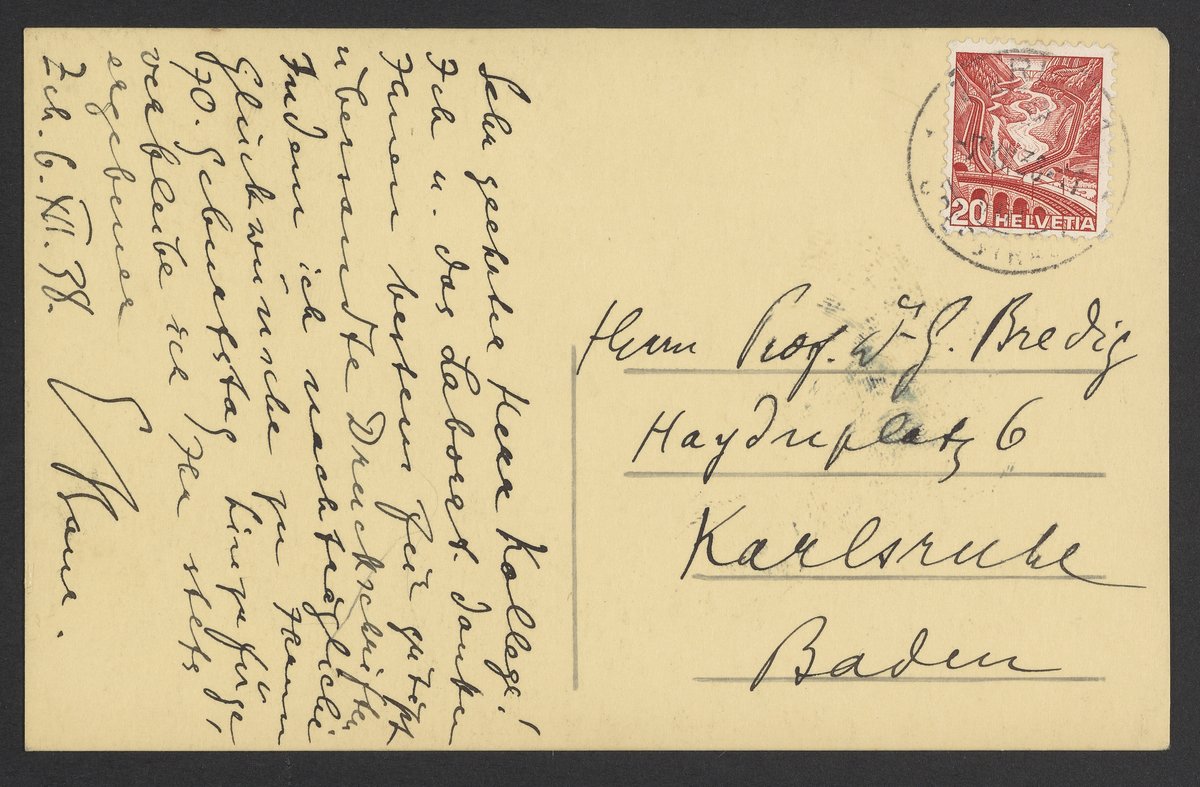 Sehr geehrter Herr Kollege!
Ich u. das Laborat. danken
Ihnen bestens für gütigst
übersandte Druckschriften
Indem ich nachträgliche
Glückwünsche zu Ihrem
70. Geburtstag hinzufüge,
verbleibe ich Ihr stets
ergebener
Zch. 6. XII. 38.
20 HELVETIA
Herrn Prof. G. Bredig
Haydnplatz 6
Karlsruhe
Baden